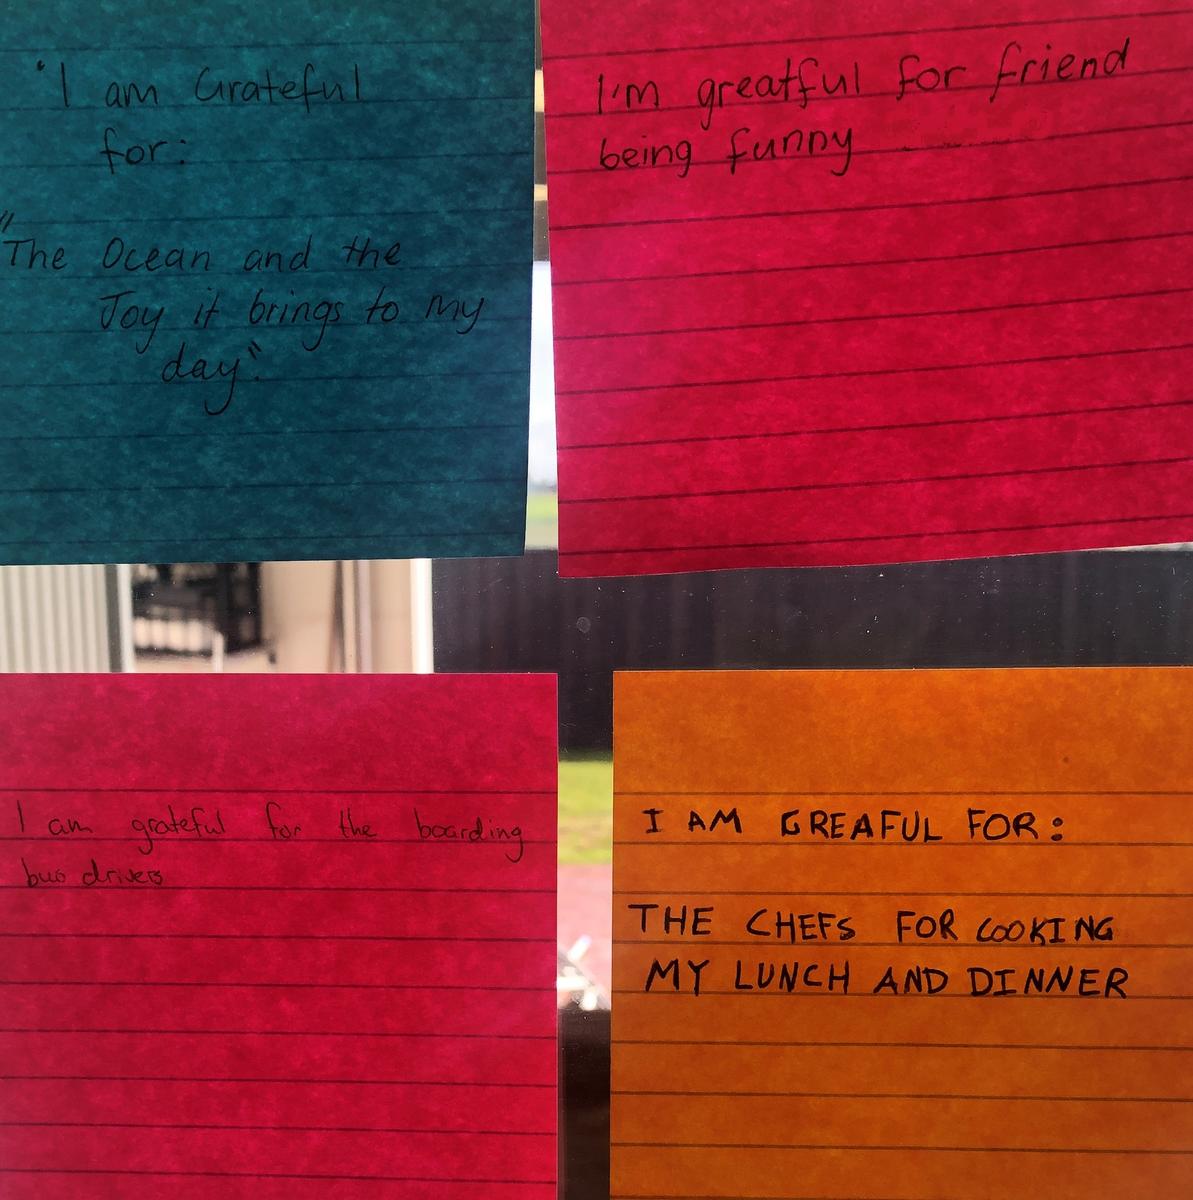 'I am Grateful
for:
"The Ocean and the
Joy it brings to my
day".
I'm greatful for friend
being funny
I am grateful for the boarding
bus drivers
I AM GREAFUL FOR:
THE CHEFS FOR COOKING
MY LUNCH AND DINNER